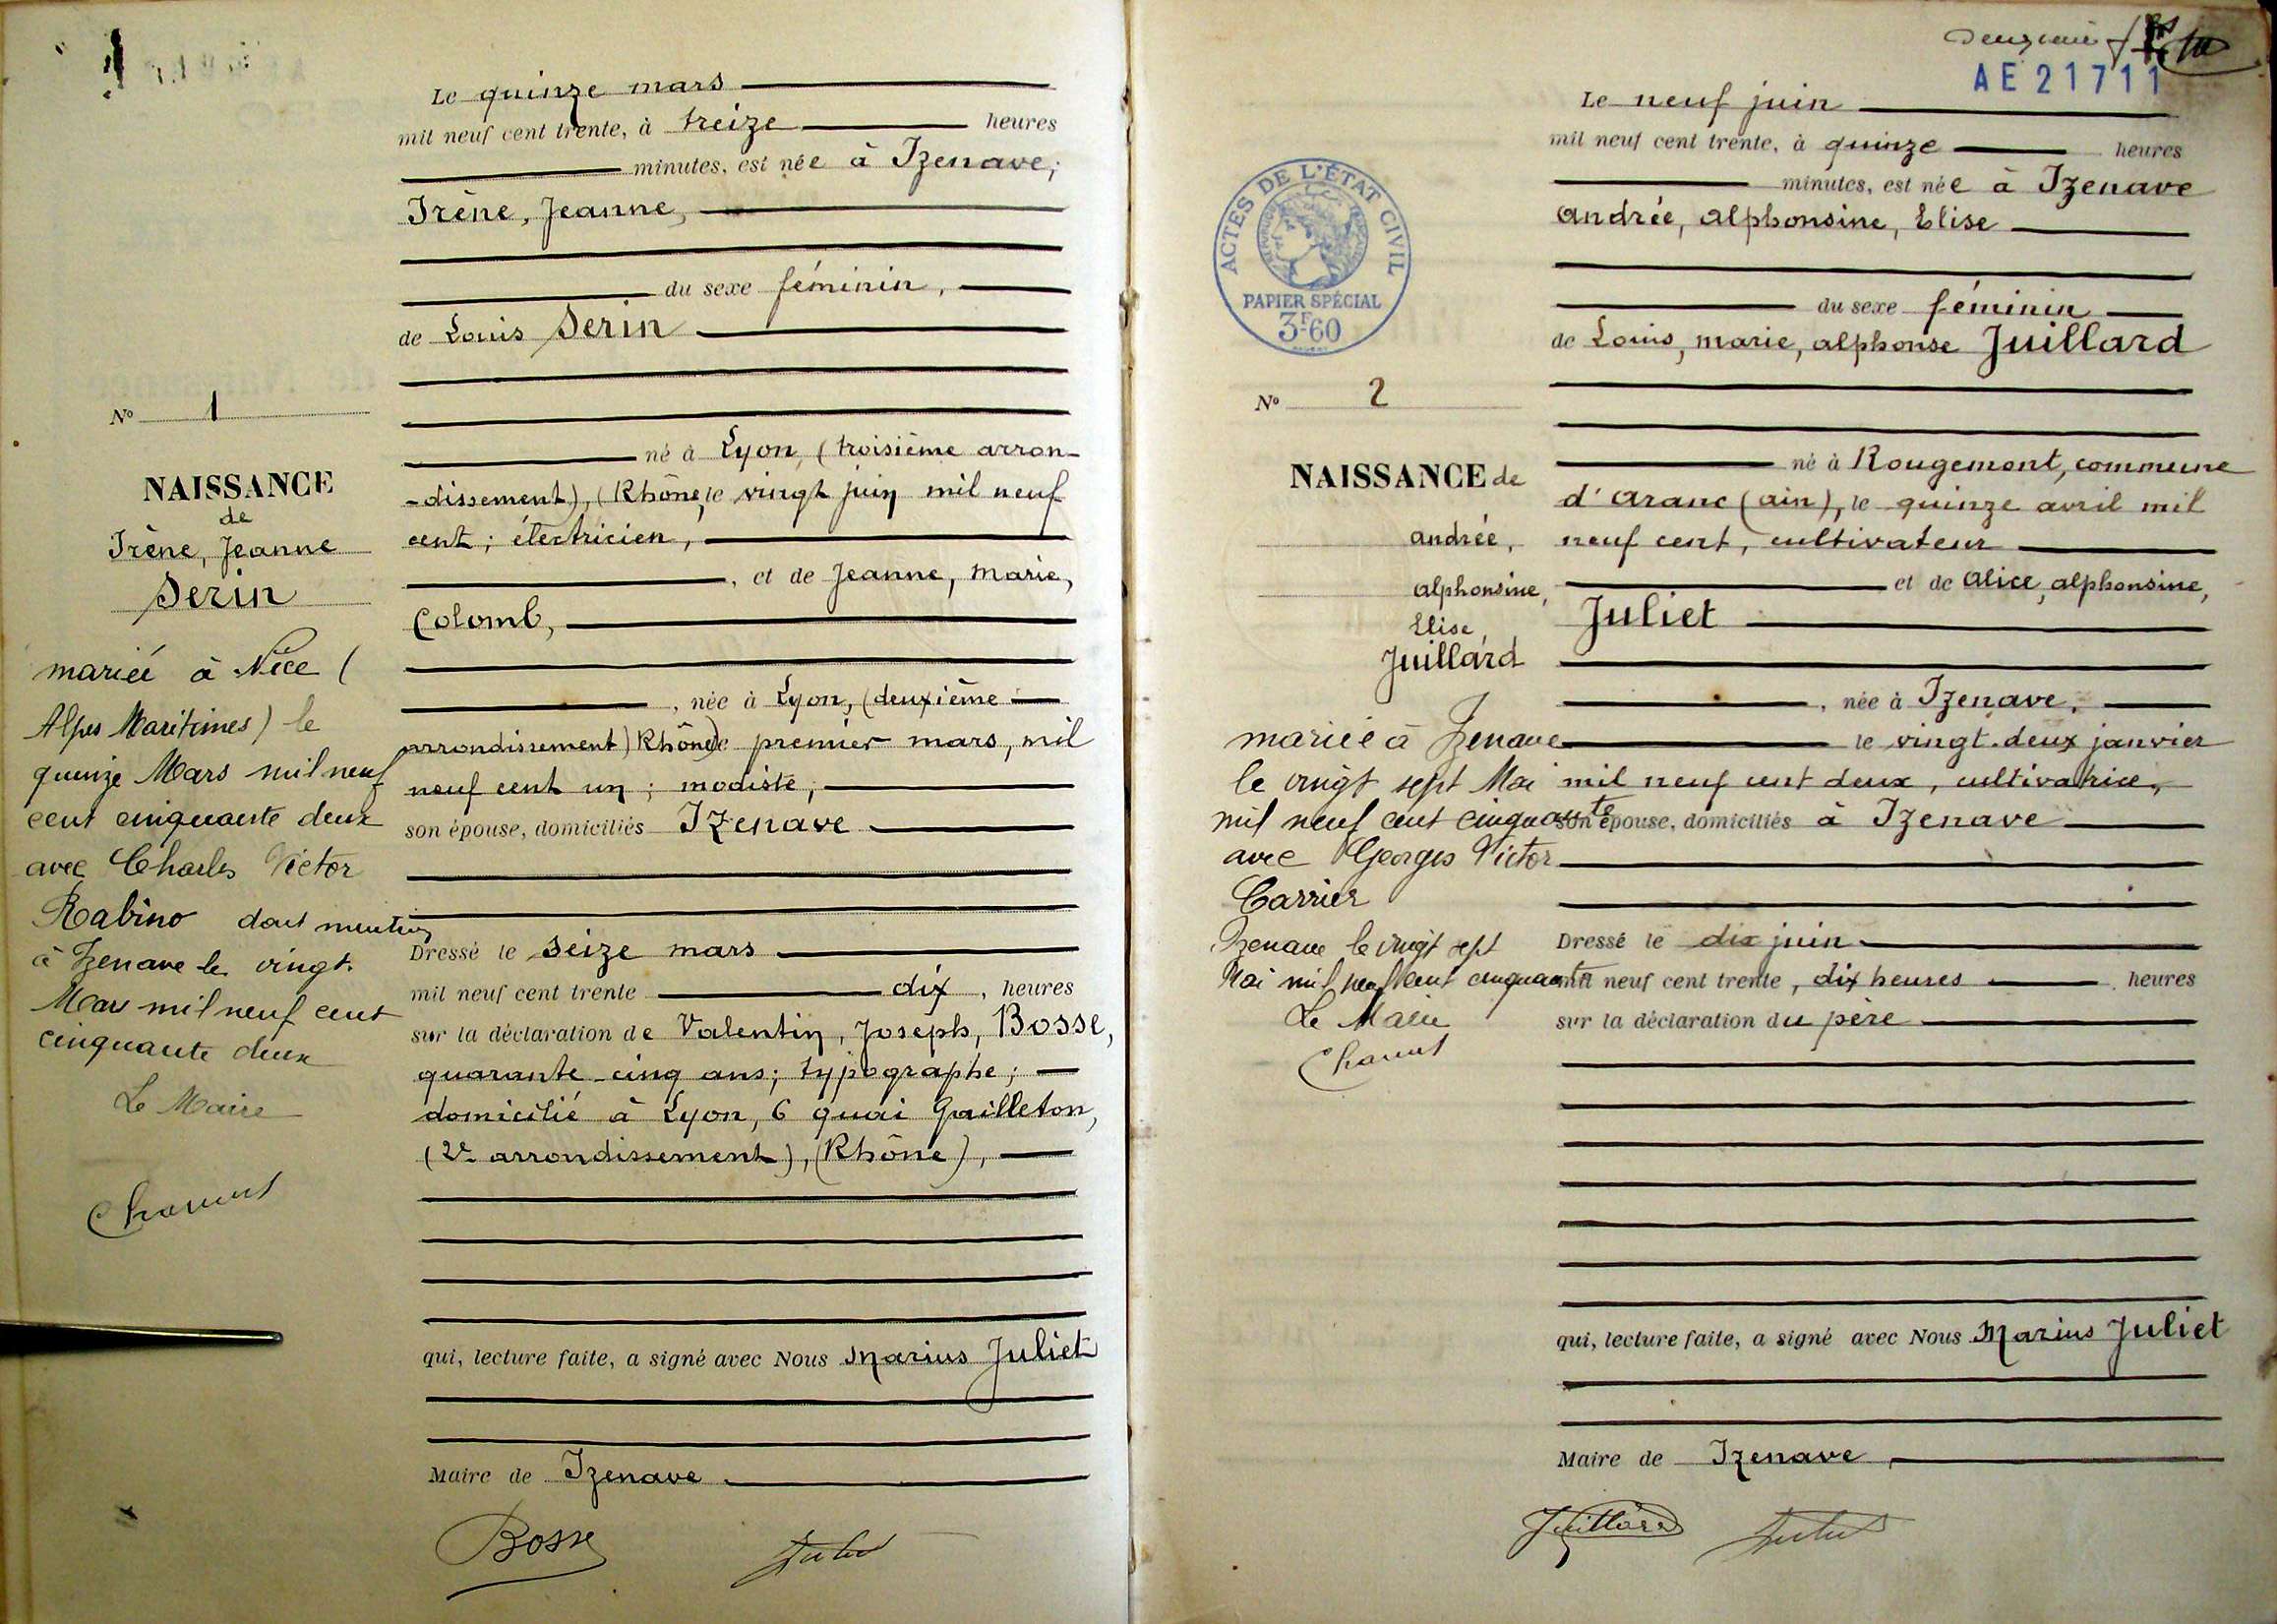 Le quinze mars
mil neuf cent trente, à treize heures
minutes, est née à Izenave,
Irène, Jeanne,
du sexe féminin,
de Louis Serin
né à Lyon, (troisième arron-
-dissement), (Rhône, le vingt juin mil neuf
cent; électricien,
, et de Jeanne, Marie,
Colomb,
, née à Lyon, (deuxième
arrondissement) Rhône) le premier mars, mil
neuf cent un; modiste,
son épouse, domiciliés Izenave
Dressé le seize mars
mil neuf cent trente dix, heures
sur la déclaration de Valentin, Joseph, Bosse,
quarante-cinq ans; typographe;
domicilié à Lyon, 6 quai Gailleton,
(2e arrondissement), (Rhône),
qui, lecture faite, a signé avec Nous Marius Juliet
Maire de Izenave
Bosse
Juliet
No 1
NAISSANCE
de
Irène, Jeanne
Serin
mariée à Nice (
Alpes Maritimes) le
quinze Mars mil neuf
cent cinquante deux
avec Charles Victor
Rabino dont mention
à Izenave le vingt
Mars mil neuf cent
cinquante deux
Le Maire
deuxième
AE 21711
Le neuf juin
mil neuf cent trente, à quinze heures
minutes, est née à Izenave
Andrée, Alphonsine, Elise
du sexe féminin
de Louis, Marie, Alphonse Juillard
né à Rougemont, commune
d'Aranc (Ain), le quinze avril mil
neuf cent, cultivateur
et de Alice, Alphonsine,
Juliet
, née à Izenave,
le vingt-deux janvier
mil neuf cent deux, cultivatrice,
son épouse, domiciliés à Izenave
Dressé le dix juin
mil neuf cent trente, dix heures heures
sur la déclaration du père
qui, lecture faite, a signé avec Nous Marius Juliet
Maire de Izenave
Juillard
Juliet
ACTES DE L'ÉTAT CIVIL
PAPIER SPÉCIAL
3F60
No 2
NAISSANCE de
Andrée,
Alphonsine,
Elise,
Juillard
mariée à Izenave
le vingt sept Mai
mil neuf cent cinquante
avec Georges Victor
Carrier
Izenave le vingt sept
Mai mil neuf cent cinquante
Le Maire